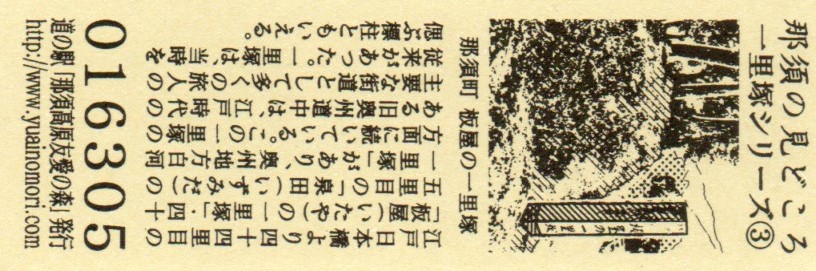 那須の見どころ
一里塚シリーズ③
那須町 板屋の一里塚
江戸日本橋より四十四里目の
「板屋(いたや)の一里塚」・四十
五里目の「泉田(いずみだ)の
一里塚」があり、奥州地方白河
方面に続いている。この一里塚の
ある旧奥州道中は、江戸時代の
主要な街道として多くの旅人の
従来があった。一里塚は、当時を
偲ぶ標柱ともいえる。
016305
道の駅「那須高原友愛の森」発行
http://www.yuainomori.com